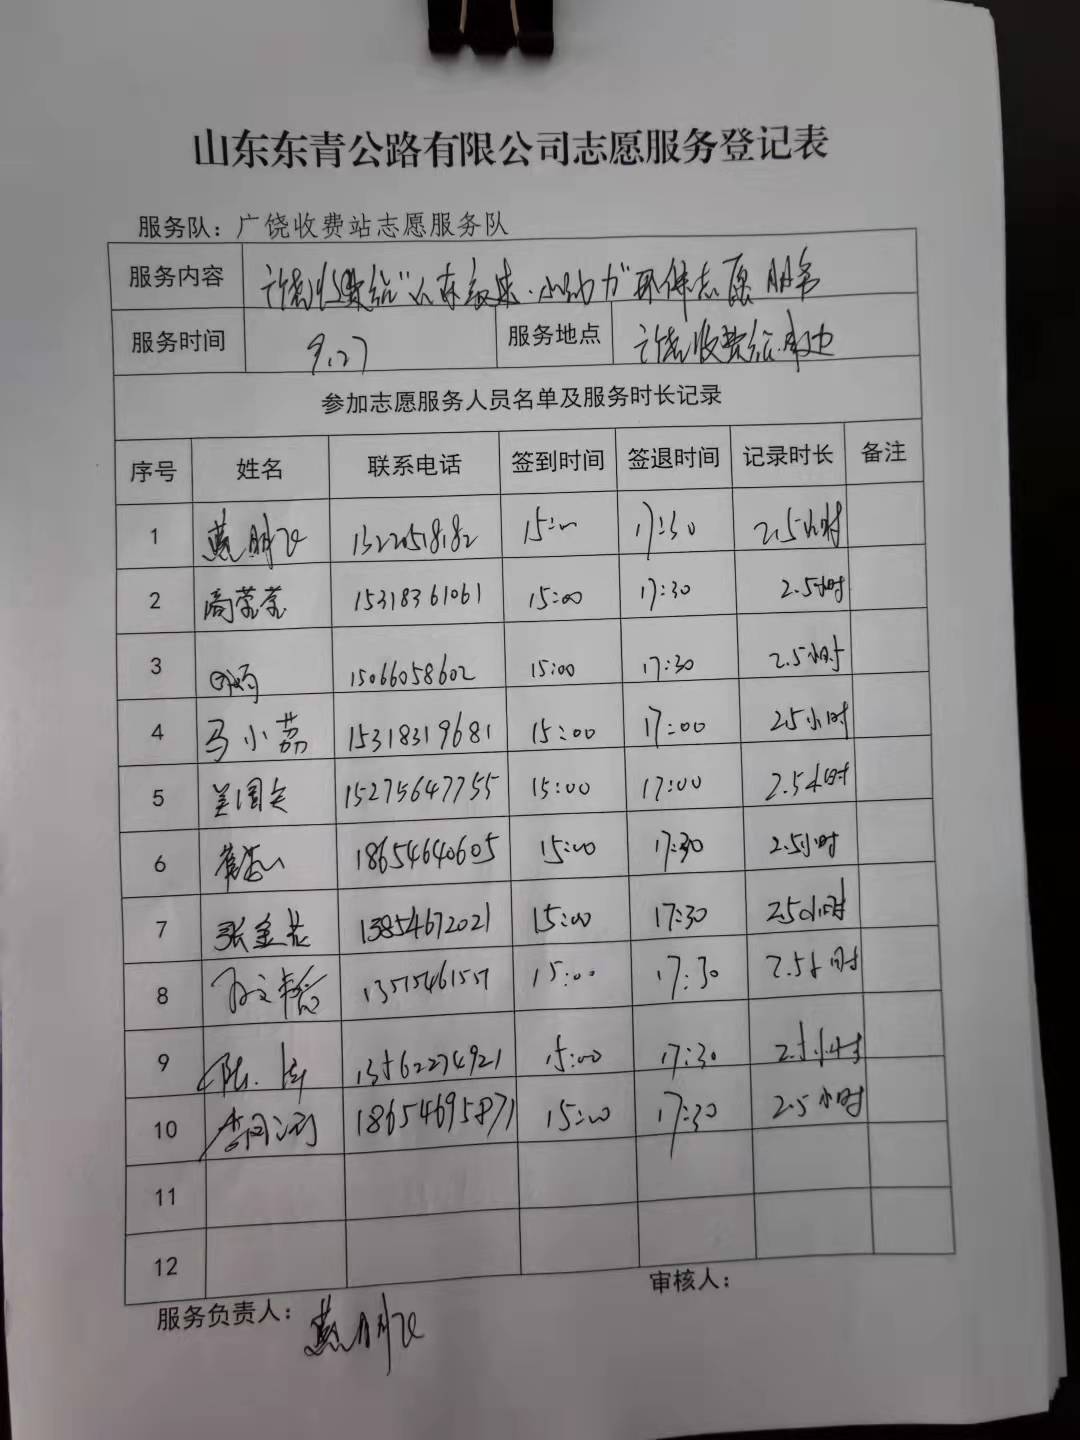 山东东青公路有限公司志愿服务登记表
服务队：广饶收费站志愿服务队
服务内容 广饶收费站“ 小助力”环保志愿服务
服务时间 9.27 服务地点 广饶收费站周边
参加志愿服务人员名单及服务时长记录
序号 姓名 联系电话 签到时间 签退时间 记录时长 备注
1 燕鹏飞 15:00 17:30 2.5小时
2 商莹莹 15318361061 15:00 17:30 2.5小时
3 15066058602 15:00 17:30 2.5小时
4 马小荔 15318319681 15:00 17:00 2.5小时
5 15275647755 15:00 17:00 2.5小时
6 18654640605 15:00 17:30 2.5小时
7 张金花 13854672021 15:00 17:30 2.5小时
8 15:00 17:30 2.5小时
9 13562274921 15:00 17:30 2.5小时
10 18654695871 15:00 17:30 2.5小时
11
12
服务负责人：燕鹏飞 审核人：